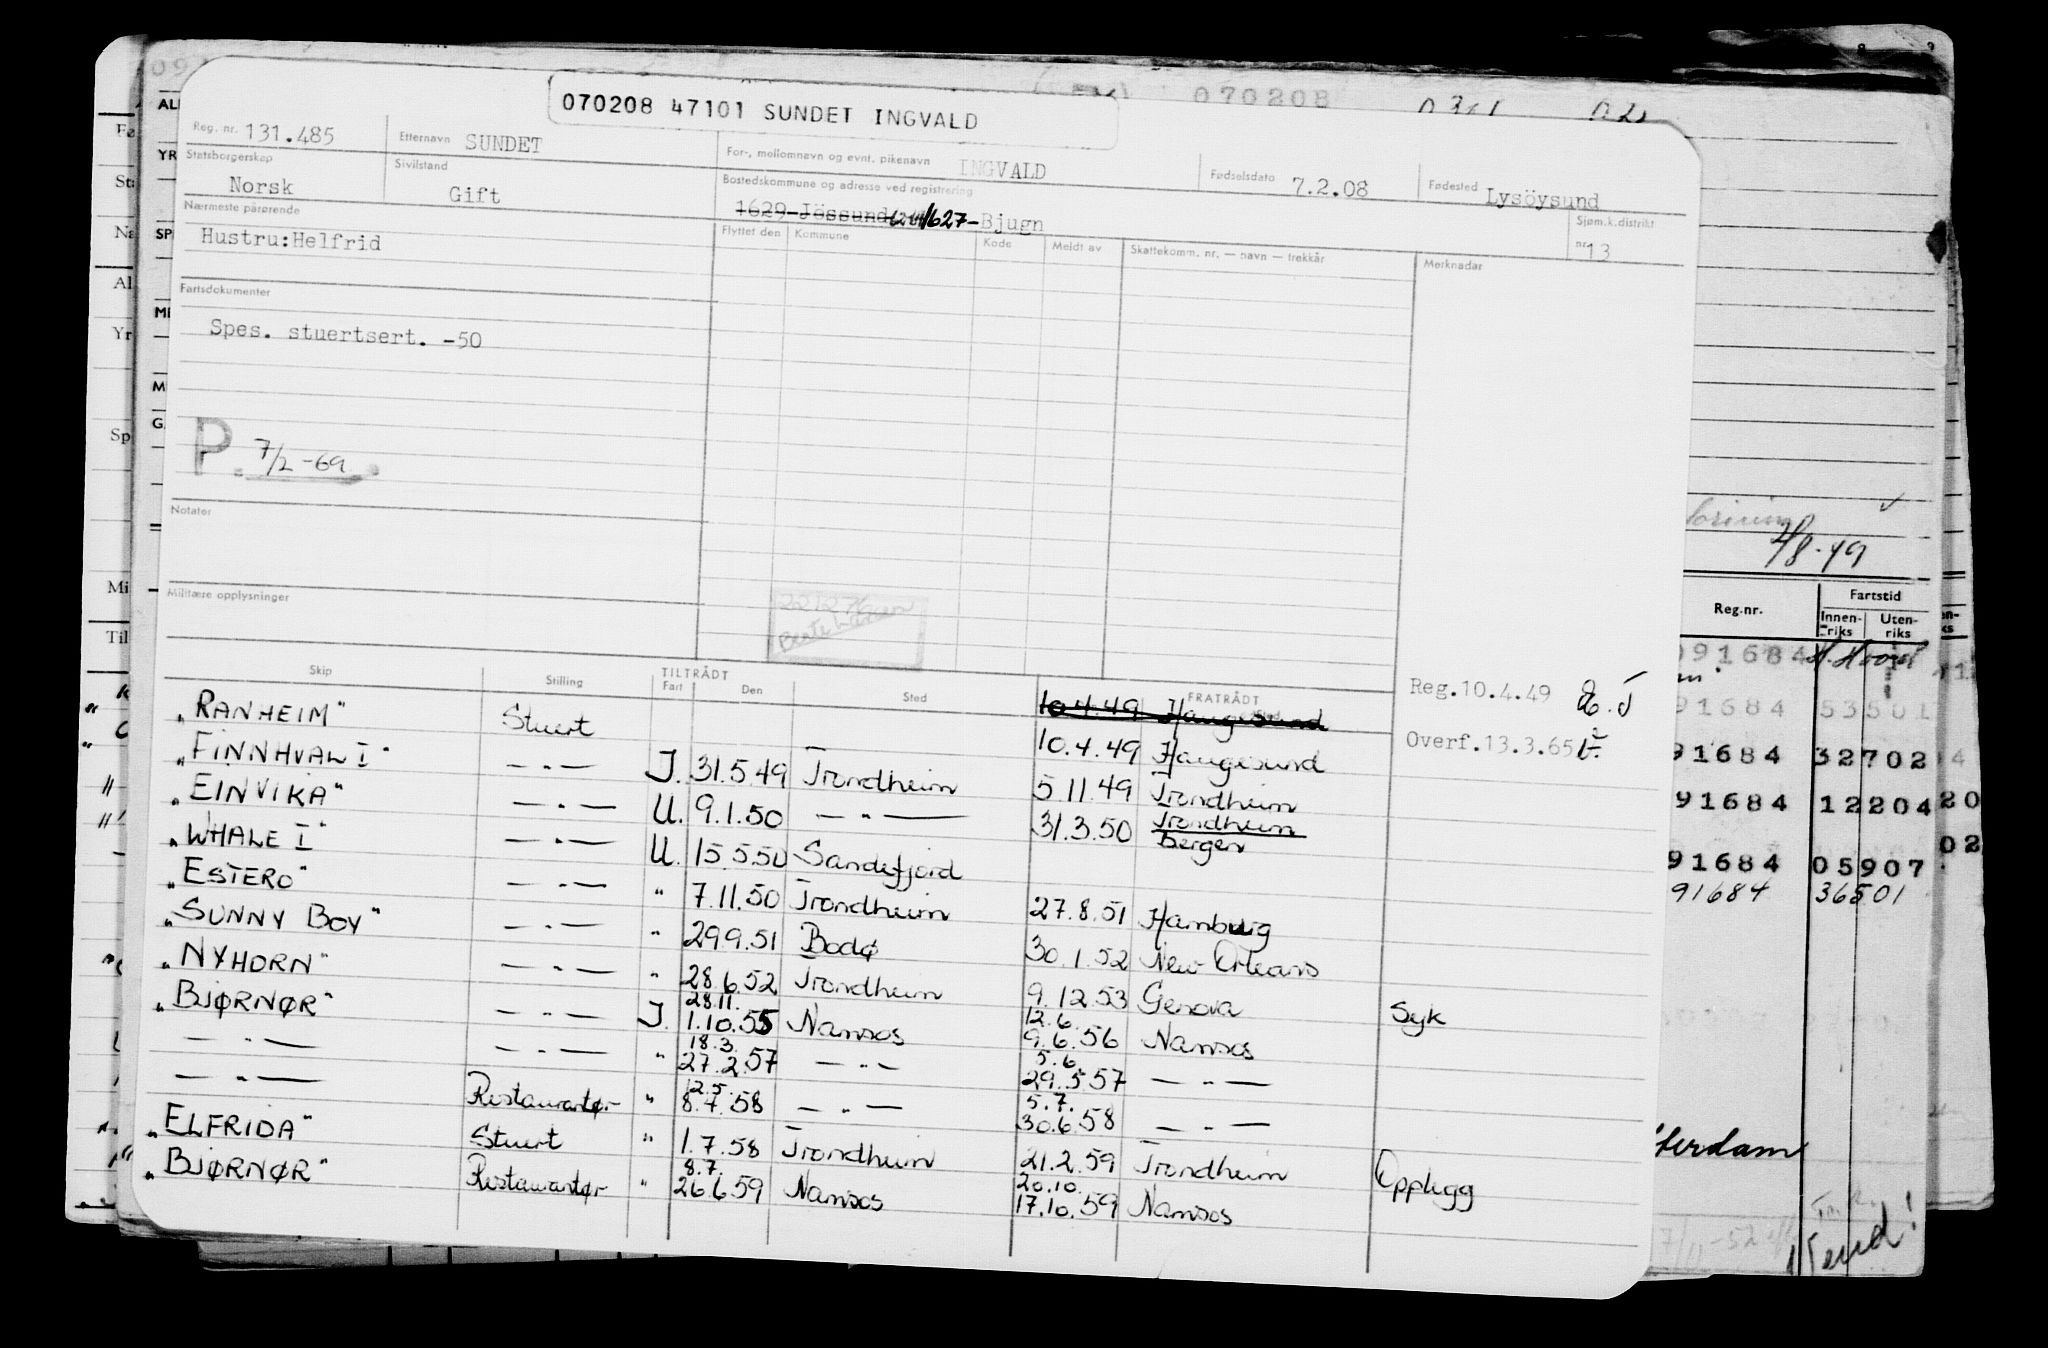 070208 47101 SUNDET INGVALD
070208
Reg. nr. 131.485 Etternavn SUNDET For-, mellomnavn og evnt. pikenavn INGVALD Fødselsdato 7.2.08 Fødested Lysöysund
Statsborgerskap Norsk Sivilstand Gift Bostedskommune og adresse ved registrering 1629-Jössund 1627-Bjugn Sjøm.k.distrikt nr. 13
Nærmeste pårørende Flyttet den Kommune Kode Meldt av Skattekomm. nr. — navn — trekkår Merknader
Hustru:Helfrid
Fartsdokumenter
Spes. stuertsert. -50
P. 7/2-69
Notater
Militære opplysninger
Reg.10.4.49
Overf.13.3.65
Skip Stilling TILTRÅDT Fart Den Sted FRATRÅDT
10.4.49 Haugesund
"RANHEIM" Stuert 10.4.49 Haugesund
"FINNHVAL I" —"— I. 31.5.49 Trondheim 5.11.49 Trondheim
"EINVIKA" —"— U. 9.1.50 —"— 31.3.50 Trondheim Bergen
"WHALE I" —"— U. 15.5.50 Sandefjord
"ESTERO" —"— " 7.11.50 Trondheim 27.8.51 Hamburg
"SUNNY BOY" —"— " 29.9.51 Bodø 30.1.52 New Orleans
"NYHORN" —"— " 28.6.52 Trondheim 9.12.53 Genova Syk
28.11. 12.6.
"BJØRNØR" —"— I. 1.10.55 Namsos 9.6.56 Namsos
18.3. 5.6.
—"— —"— " 27.2.57 —"— 29.5.57 —"—
12.5. 5.7.
—"— Restauratør " 8.4.58 —"— 30.6.58 —"—
"ELFRIDA" Stuert " 1.7.58 Trondheim 21.2.59 Trondheim Opplegg
8.7. 20.10.
"BJØRNØR" Restauratør " 26.6.59 Namsos 17.10.59 Namsos
2/8-49
Reg.nr. Fartstid
Innenriks Utenriks
091684
91684 53501
91684 32702
91684 12204
91684 05907
91684 36501
20
02